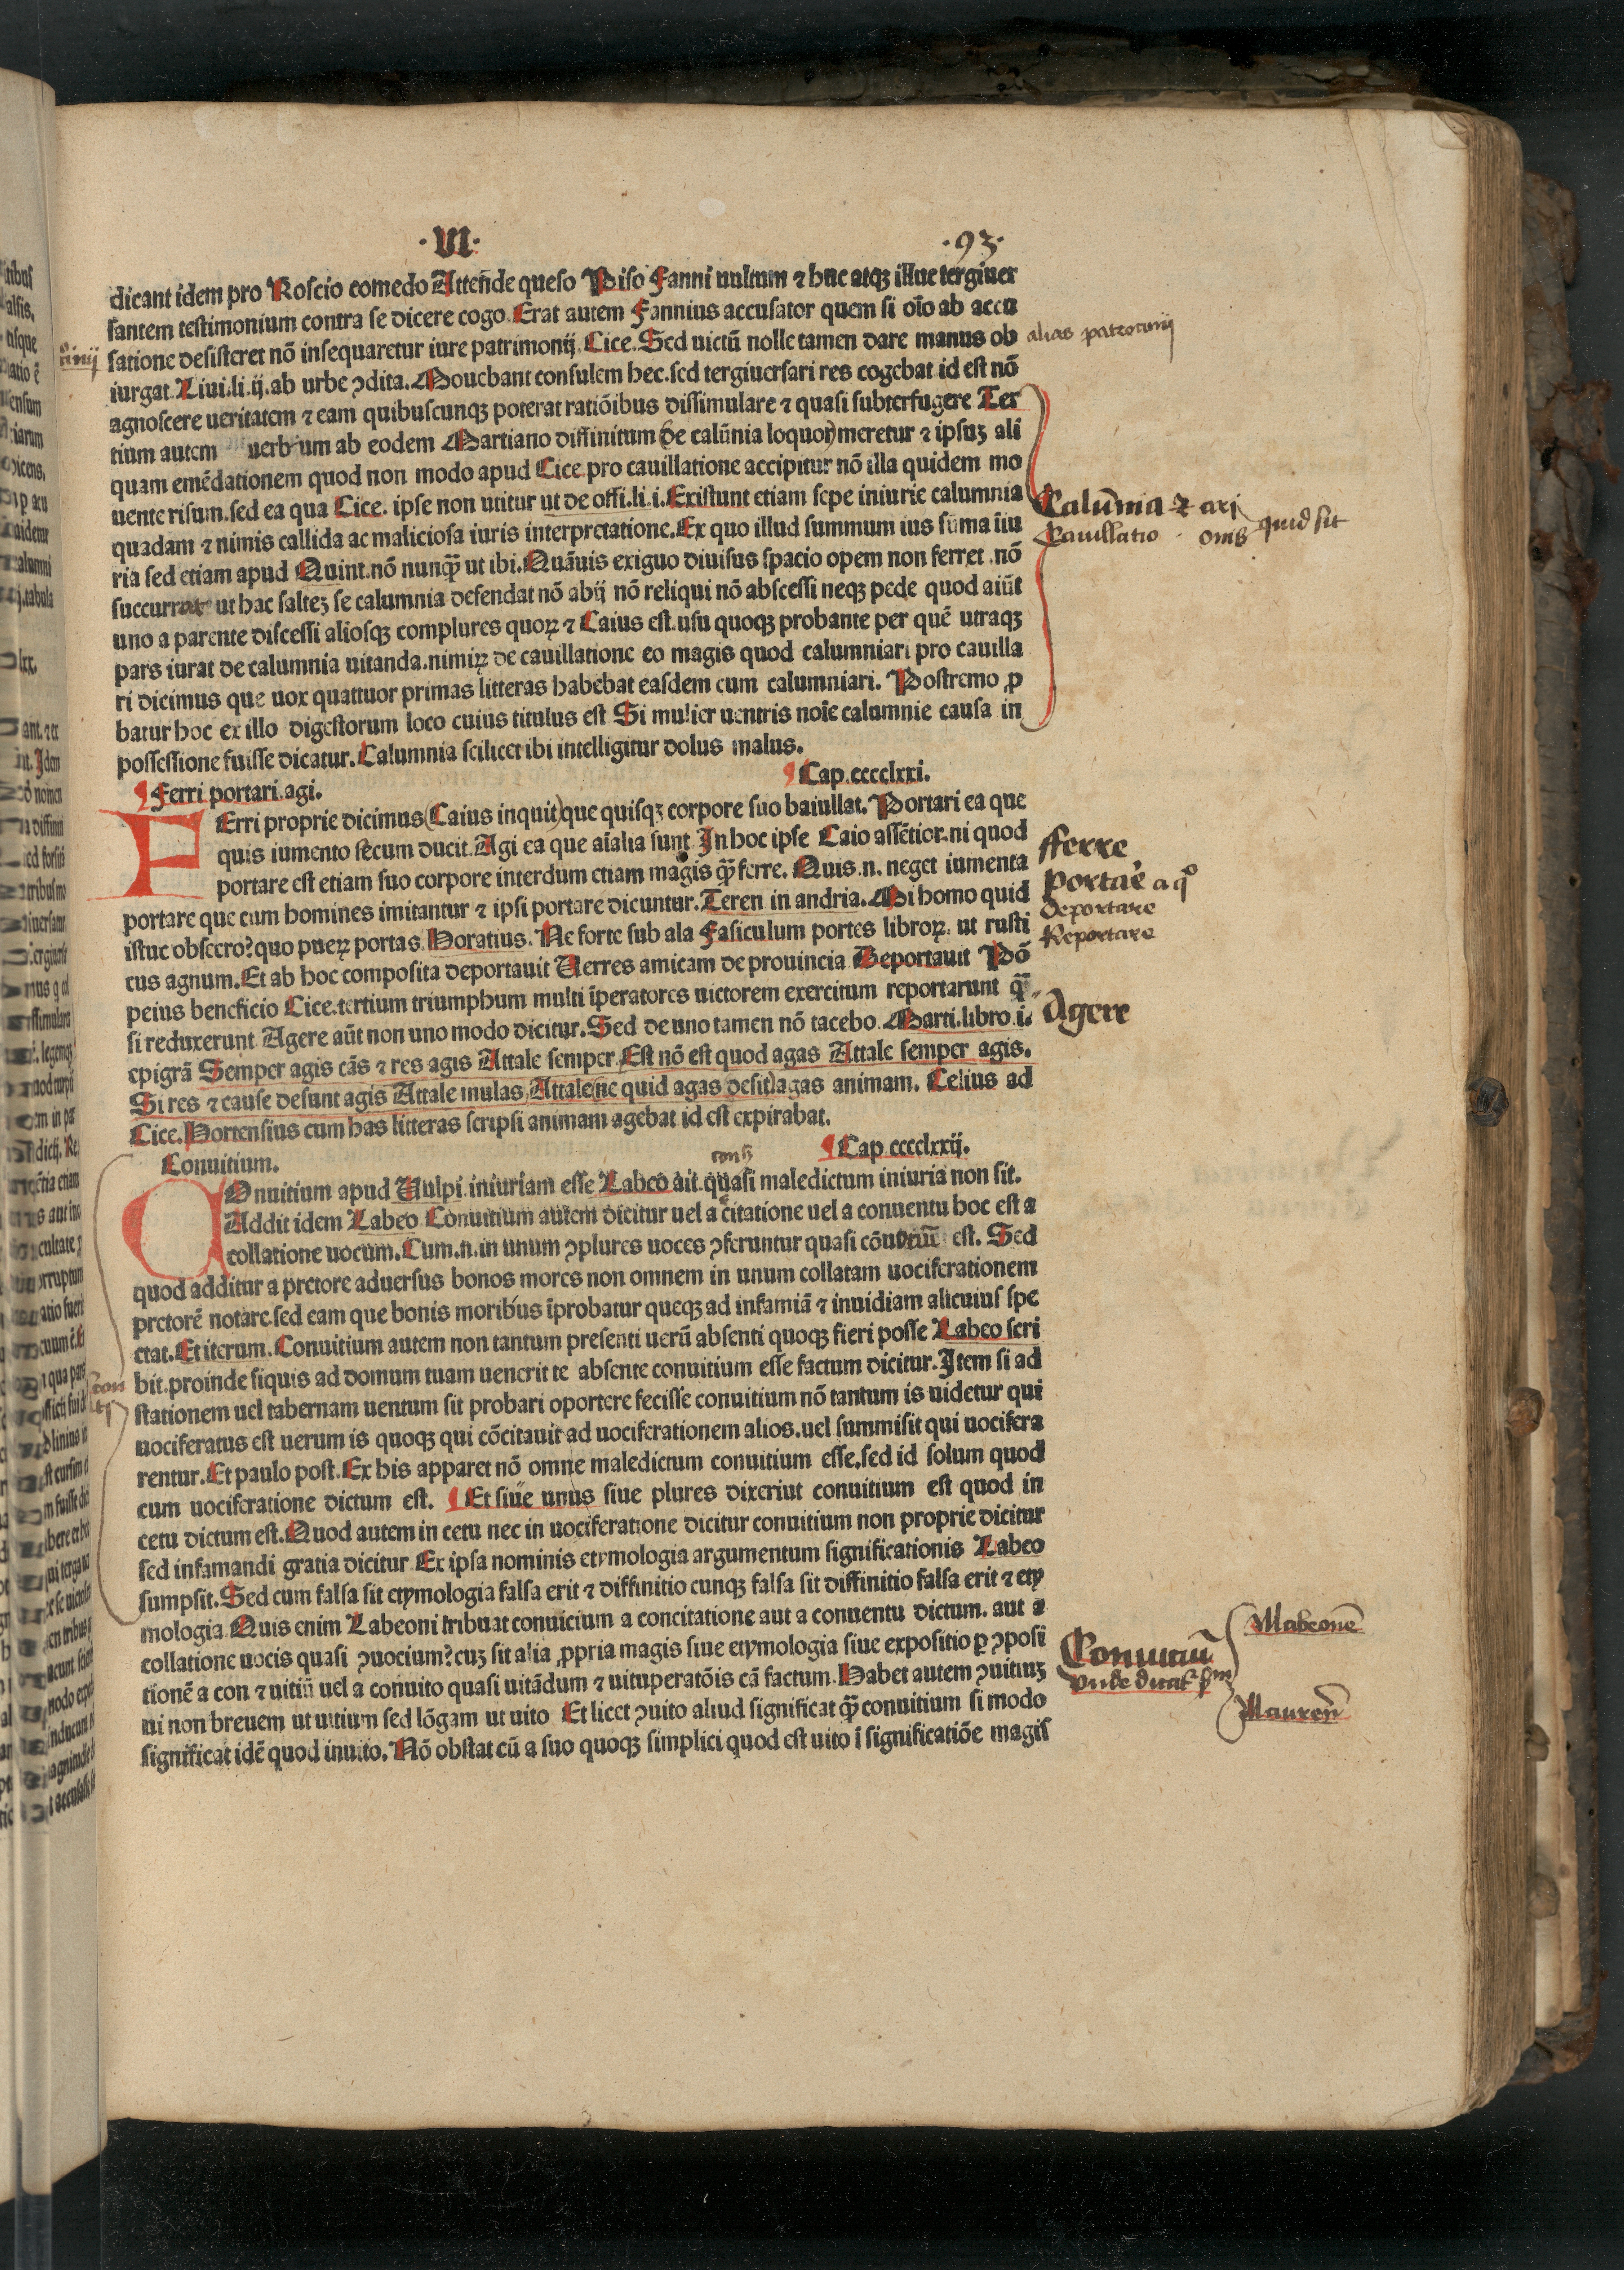 ·VI· ·93·
dicant idem pro Roscio comedo Attende queso Piso Fanni uultum ⁊ huc atqꝫ illuc tergiuer
santem testimonium contra se dicere cogo. Erat autem Fannius accusator quem si oīo ab accu
satione desisteret nō insequaretur iure patrimonij. Cice. Sed uictū nolle tamen dare manus ob
alias patrocinij
iurgat. Liui.li.ij.ab urbe ꝯdita. Mouebant consulem hec.sed tergiuersari res cogebat id est nō
agnoscere ueritatem ⁊ eam quibuscunqꝫ poterat ratiōibus dissimulare ⁊ quasi subterfugere Ter
tium autem uerbum ab eodem Martiano diffinitum (de calūnia loquor) meretur ⁊ ipsuꝫ ali
quam emēdationem quod non modo apud Cice.pro cauillatione accipitur nō illa quidem mo
uente risum.sed ea qua Cice. ipse non utitur ut de offi.li.i. Existunt etiam sepe iniurie calumnia
Calūnia ⁊
quadam ⁊ nimis callida ac maliciosa iuris interpretatione. Ex quo illud summum ius sūma īiu
Cauillatio quid sit
ria sed etiam apud Quint.nō nunqꝫ̄ ut ibi. Quāuis exiguo diuisus spacio opem non ferret .nō
succurrat ut hac salteꝫ se calumnia defendat nō abij nō reliqui nō abscessi neqꝫ pede quod aiūt
uno a parente discessi aliosqꝫ complures quoꝝ ⁊ Caius est.usu quoqꝫ probante per quē utraqꝫ
pars iurat de calumnia uitanda.nimiꝝ de cauillatione eo magis quod calumniari pro cauilla
ri dicimus que uox quattuor primas litteras habebat easdem cum calumniari. Postremo ꝓ
batur hoc ex illo digestorum loco cuius titulus est Si mulier uentris noīe calumnie causa in
possessione fuisse dicatur. Calumnia scilicet ibi intelligitur dolus malus.
¶ Ferri portari.agi. ¶ Cap.cccclxxi.
FErri proprie dicimus (Caius inquit) que quisqꝫ corpore suo baiullat. Portari ea que
quis iumento secum ducit. Agi ea que aīalia sunt. In hoc ipse Caio assētior.ni quod
fferre
portare est etiam suo corpore interdum etiam magis qꝫ̄ ferre. Quis.n. neget iumenta
portare a qo
portare que cum homines imitantur ⁊ ipsi portare dicuntur. Teren in andria. Mi homo quid
deportare
istuc obsecro? quo pueꝝ portas. Horatius. Ne forte sub ala Fasiculum portes libroꝝ. ut rusti
Reportare
cus agnum. Et ab hoc composita deportauit Uerres amicam de prouincia Deportauit Pō
peius beneficio Cice.tertium triumphum multi īperatores uictorem exercitum reportarunt qꝫ̄
si reduxerunt Agere aūt non uno modo dicitur. Sed de uno tamen nō tacebo. Marti.libro.i.
Agere
epigrā Semper agis cās ⁊ res agis Attale semper. Est nō est quod agas Attale semper agis.
Si res ⁊ cause desunt agis Attale mulas, Attale (ne quid agas desit) agas animam. Celius ad
Cice. Hortensius cum has litteras scripsi animam agebat id est expirabat.
Conuitium. ¶ Cap.cccclxxij.
COnuitium apud Uulpi.iniuriam esse Labeo ait quasi maledictum iniuria non sit.
Addit idem Labeo Conuitium autem dicitur uel a citatione uel a conuentu hoc est a
collatione uocum. Cum.n.in unum ꝯplures uoces ꝯferuntur quasi est. Sed
quod additur a pretore aduersus bonos mores non omnem in unum collatam uociferationem
pretorē notare.sed eam que bonis moribus īprobatur queqꝫ ad infamiā ⁊ inuidiam alicuius spe
ctat. Et iterum. Conuitium autem non tantum presenti uerū absenti quoqꝫ fieri posse Labeo scri
bit.proinde siquis ad domum tuam uenerit te absente conuitium esse factum dicitur. Item si ad
stationem uel tabernam uentum sit probari oportere fecisse conuitium nō tantum is uidetur qui
uociferatus est uerum is quoqꝫ qui cōcitauit ad uociferationem alios.uel summisit qui uocifera
rentur. Et paulo post. Ex his apparet nō omne maledictum conuitium esse.sed id solum quod
cum uociferatione dictum est. ¶ Et siue unus siue plures dixerint conuitium est quod in
cetu dictum est. Quod autem in cetu nec in uociferatione dicitur conuitium non proprie dicitur
sed infamandi gratia dicitur Ex ipsa nominis etymologia argumentum significationis Labeo
sumpsit. Sed cum falsa sit etymologia falsa erit ⁊ diffinitio cunqꝫ falsa sit diffinitio falsa erit ⁊ ety
mologia Quis enim Labeoni tribuat conuicium a concitatione aut a conuentu dictum. aut a
collatione uocis quasi ꝯuocium? cuꝫ sit alia ꝓpria magis siue etymologia siue expositio ꝑ ꝯposi
Conuitiū
tionē a con ⁊ uitiū uel a conuito quasi uitādum ⁊ uituperatōis cā factum. Habet autem ꝯuitiuꝫ
ui non breuem ut uitium sed lōgam ut uito Et licet ꝯuito aliud significat qꝫ̄ conuitium si modo
significat idē quod inuito. Nō obstat cū a suo quoqꝫ simplici quod est uito ī significatiōe magis